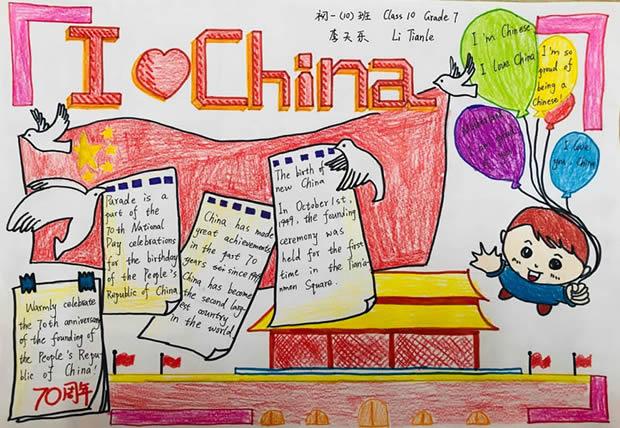 初一(10)班 Class 10 Grade 7
李天乐 Li Tianle
I China
I'm Chinese.
I love China
I'm so
proud of
being a
Chinese!
I love
you, China
The birth of
new China
In October 1st,
1949, the founding
ceremony was
held for the first
time in the Tiana-
nmen Square.
Parade is a
part of the
70th National
Day celebrations
for the birthday
of the People's
Republic of China
China has made
great achievements
in the part 70
years sei since 1949
China has become
the second larg-
est country
in the world
Warmly celebrate
the 70th anniversary
of the founding of
the People's Repu-
blic of China!
70周年